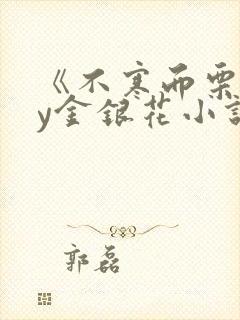 《不寒而栗
y金银花小说
郭磊